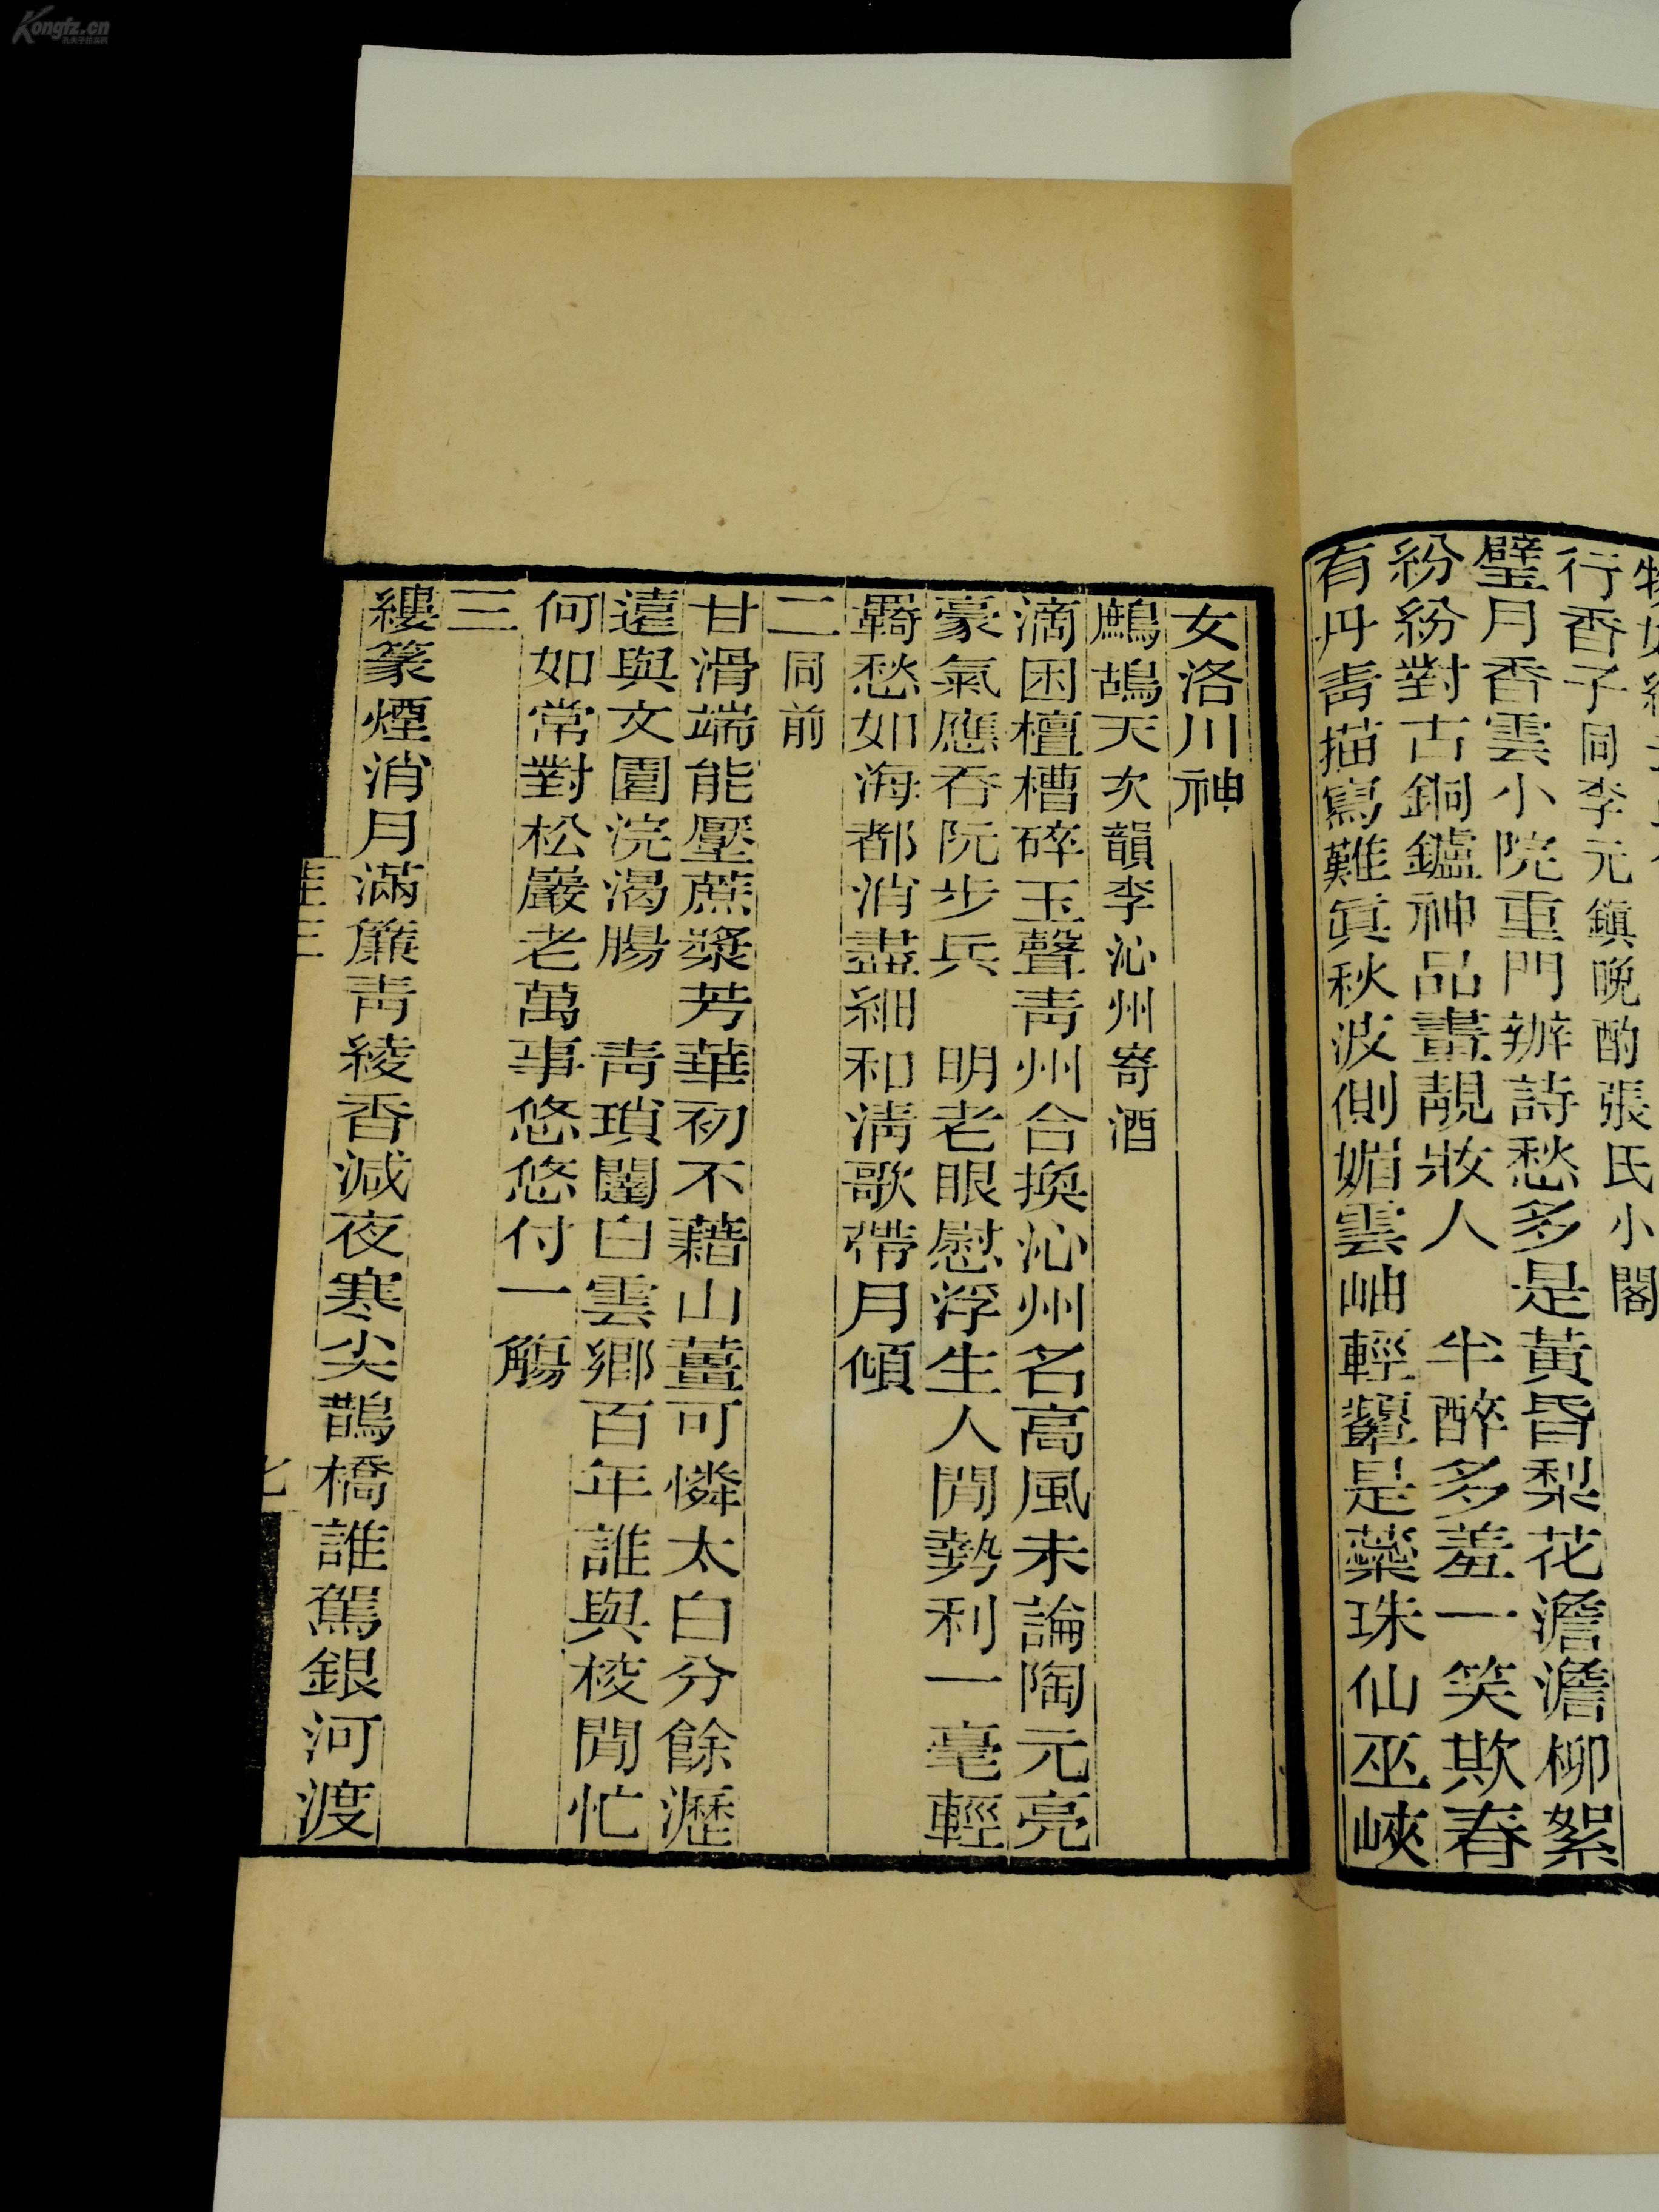 行香子同李元鎮晚酌張氏小閣
璧月香雲小院重門辦詩愁多是黃昏梨花澹澹柳絮
紛紛對古銅鑪神品畫靚妝人　半醉多羞一笑欺春
有丹青描寫難眞秋波側媚雲岫輕顰是蘂珠仙巫峽
女洛川神
鷓鴣天次韻李沁州寄酒
滴困檀槽碎玉聲青州合換沁州名高風未論陶元亮
豪氣應吞阮步兵　明老眼慰浮生人閒勢利一毫輕
羇愁如海都消盡細和淸歌帶月傾
二同前
甘滑端能壓蔗漿芳華初不藉山薑可憐太白分餘瀝
遠與文園浣渴腸　青瑣闥白雲鄉百年誰與校閒忙
何如常對松巖老萬事悠悠付一觴
三
縷篆煙消月滿簾青綾香減夜寒尖鵲橋誰駕銀河渡
Kongfz.cn